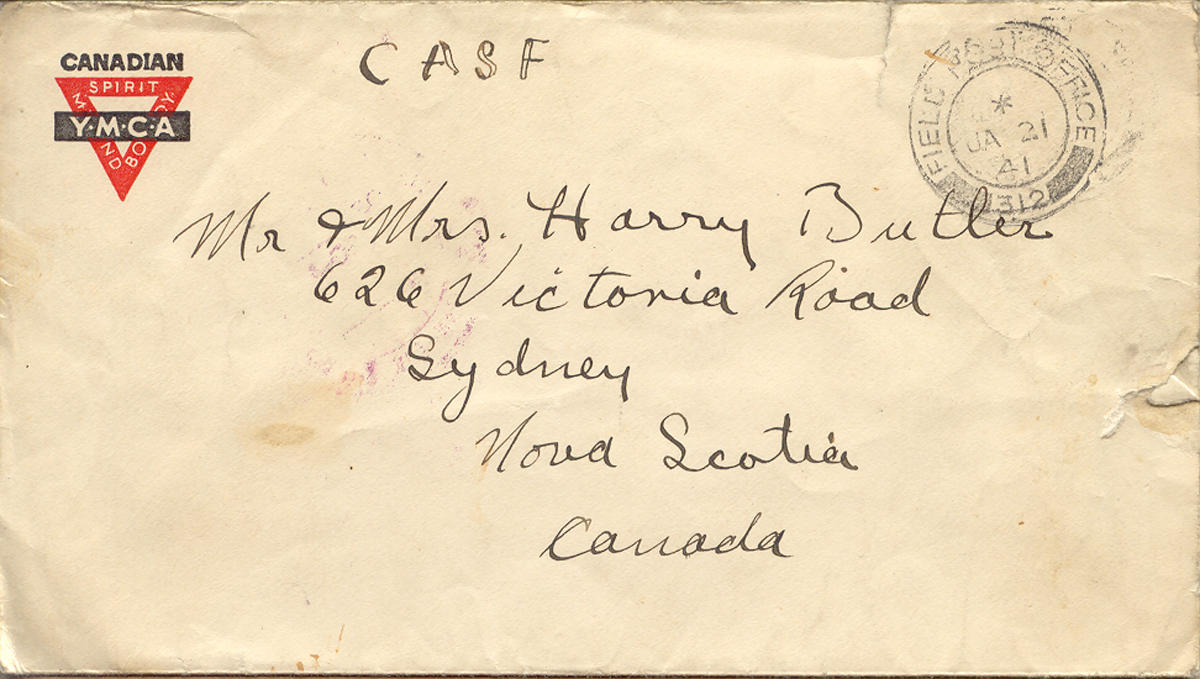 CANADIAN
SPIRIT
MIND
BODY
Y·M·C·A
CASF
FIELD POST OFFICE
*
JA 21
41
312
Mr & Mrs. Harry Butler
626 Victoria Road
Sydney
Nova Scotia
Canada